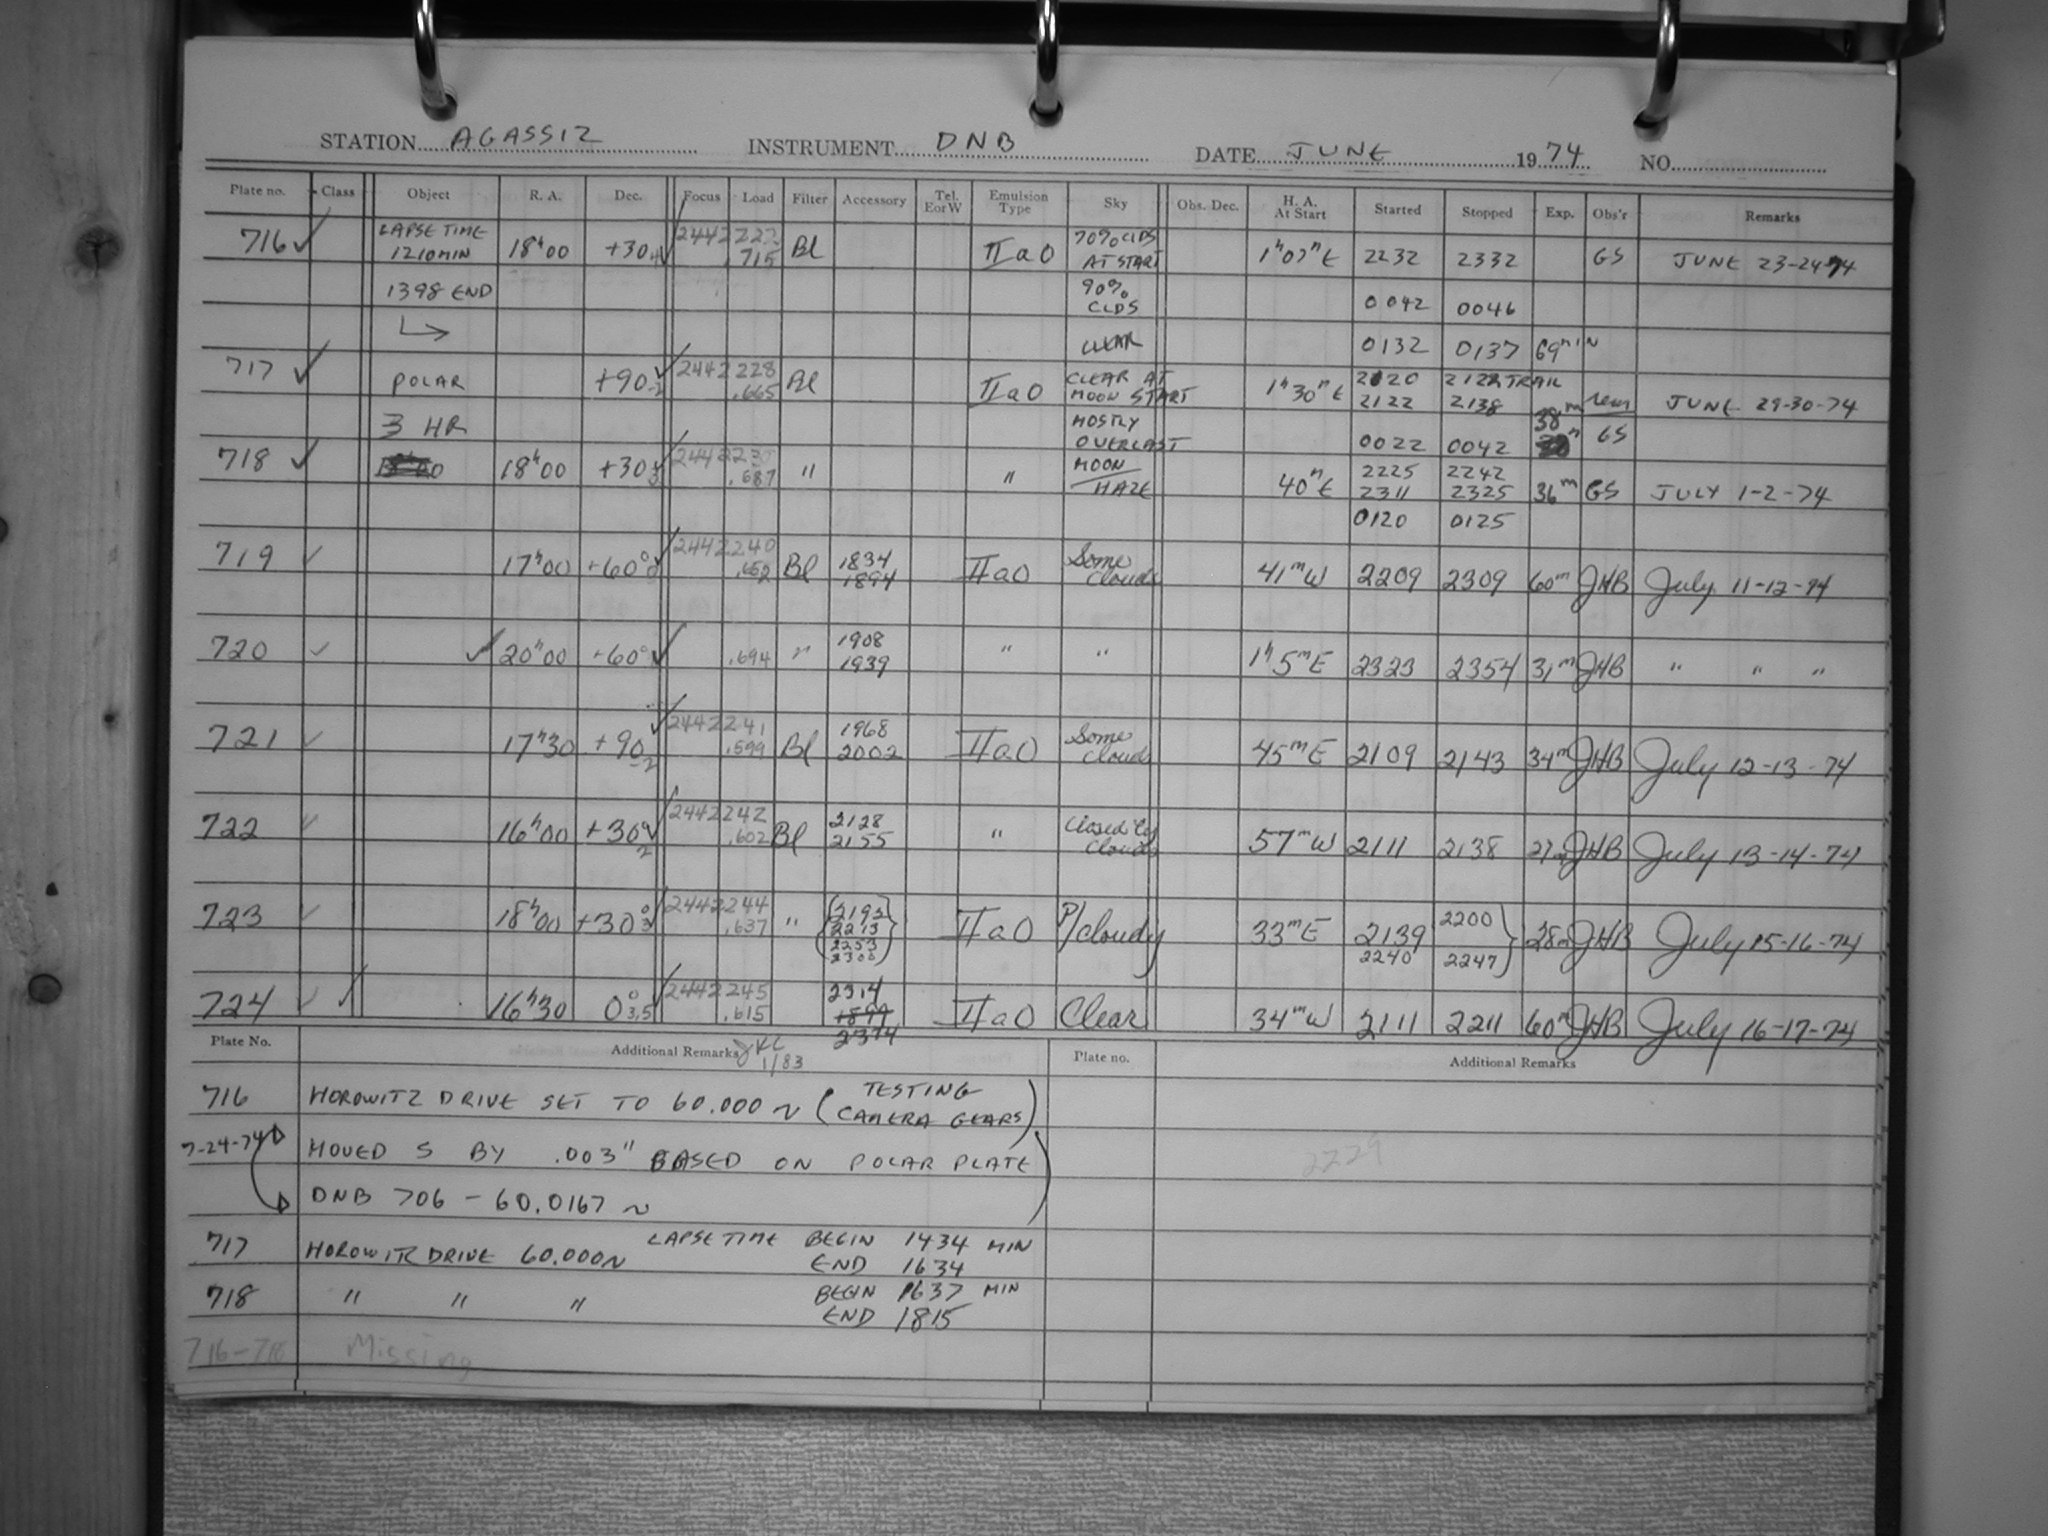 STATION AGASSIZ INSTRUMENT DNB DATE JUNE 1974 NO.
Plate no. Class Object R. A. Dec. Focus Load Filter Accessory Tel. E or W Emulsion Type Sky Obs. Dec. H. A. At Start Started Stopped Exp. Obs'r Remarks
716 ✓ LAPSE TIME 1210 MIN 18h00 +30 ✓ 2442 222 .715 Bl IIaO 70% CLDS AT START 1h07m E 2232 2332 GS JUNE 23-24-74
1398 END 90% CLDS 0042 0046
↳ CLEAR 0132 0137 69 MIN
717 ✓ POLAR +90 -2 ✓ 2442 228 .665 Bl IIaO CLEAR AT MOON START 1h30m E 2120 2122 TRAIL
2122 2138 JUNE 29-30-74
3 HR MOSTLY OVERCAST 0022 0042 38m GS
718 ✓ 18h00 +30 3 ✓ 2442230 .687 " " MOON / HAZE 40m E 2225 2242
2311 2325 36m GS JULY 1-2-74
0120 0125
719 ✓ 17h00 +60° 0 ✓ 2442240 .652 Bl 1834 1894 IIaO Some Clouds 41m W 2209 2309 60m JHB July 11-12-74
720 ✓ ✓ 20h00 +60° ✓ .694 " 1908 1939 " " 1h5m E 2323 2354 31m JHB " " "
721 ✓ 17h30 +90 -2 ✓ 2442241 .599 Bl 1968 2002 IIaO Some Clouds 45m E 2109 2143 34m JHB July 12-13-74
722 ✓ 16h00 +30° 2 ✓ 2442242 .602 Bl 2128 2155 " Closed by Clouds 57m W 2111 2138 27m JHB July 13-14-74
723 ✓ 18h00 +30° 3 ✓ 2442244 .637 " 2192 2213 2253 2300 IIaO P/Cloudy 33m E 2139 2200
2240 2247 28m JHB July 15-16-74
724 ✓ ✓ 16h30 0° 3.5 ✓ 2442245 .615 2314 1899 2374 IIaO Clear 34m W 2111 2211 60m JHB July 16-17-74
Plate No. Additional Remarks JKC 1/83 Plate no. Additional Remarks
716 HOROWITZ DRIVE SET TO 60.000 ~ (TESTING CAMERA GEARS)
7-24-74 MOVED S BY .003" BASED ON POLAR PLATE
2229
DNB 706 - 60.0167 ~
717 HOROWITZ DRIVE 60.000~ LAPSE TIME BEGIN 1434 MIN
END 1634
718 " " " BEGIN 1637 MIN
END 1815
716-718 Missing